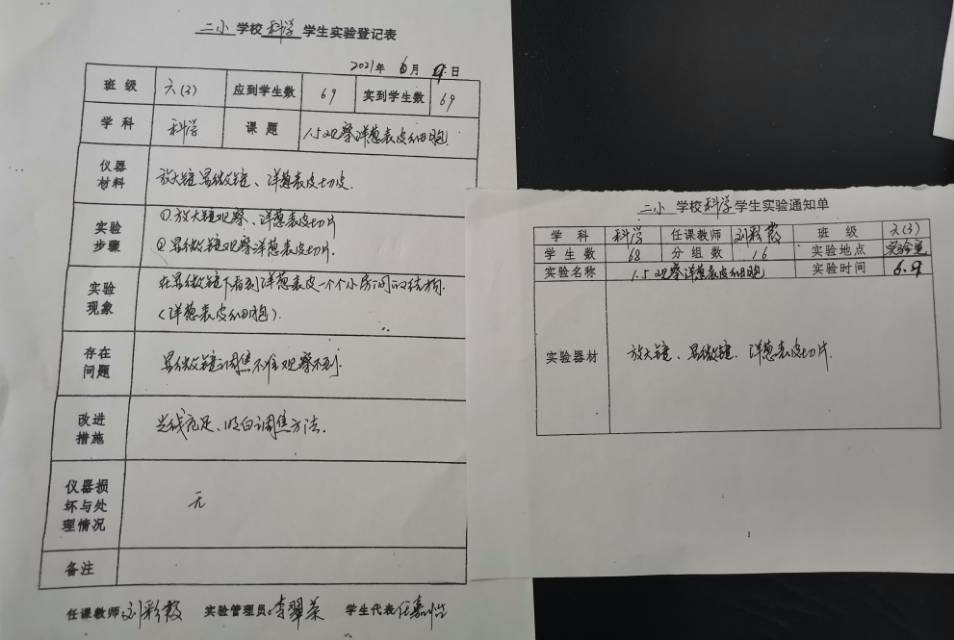 二小 学校 科学 学生实验登记表
2021年 6月 9日
班级 六(3) 应到学生数 69 实到学生数 69
学科 科学 课题 1.5观察洋葱表皮细胞
仪器材料 放大镜 显微镜、洋葱表皮切皮.
实验步骤 ①.放大镜观察、洋葱表皮切片
②.显微镜观察洋葱表皮切片.
实验现象 在显微镜下看到洋葱表皮一个个小房间的结构.
(洋葱表皮细胞).
存在问题 显微镜调焦不准观察不到.
改进措施 光线充足、明白调焦方法.
仪器损坏与处理情况 无
备注
任课教师:刘彩霞 实验管理员:李翠荣 学生代表:任嘉怡
二小 学校 科学 学生实验通知单
学科 科学 任课教师 刘彩霞 班级 六(3)
学生数 68 分组数 16 实验地点 实验室
实验名称 1.5观察洋葱表皮细胞 实验时间 6.9
实验器材 放大镜、显微镜.洋葱表皮切片.
1